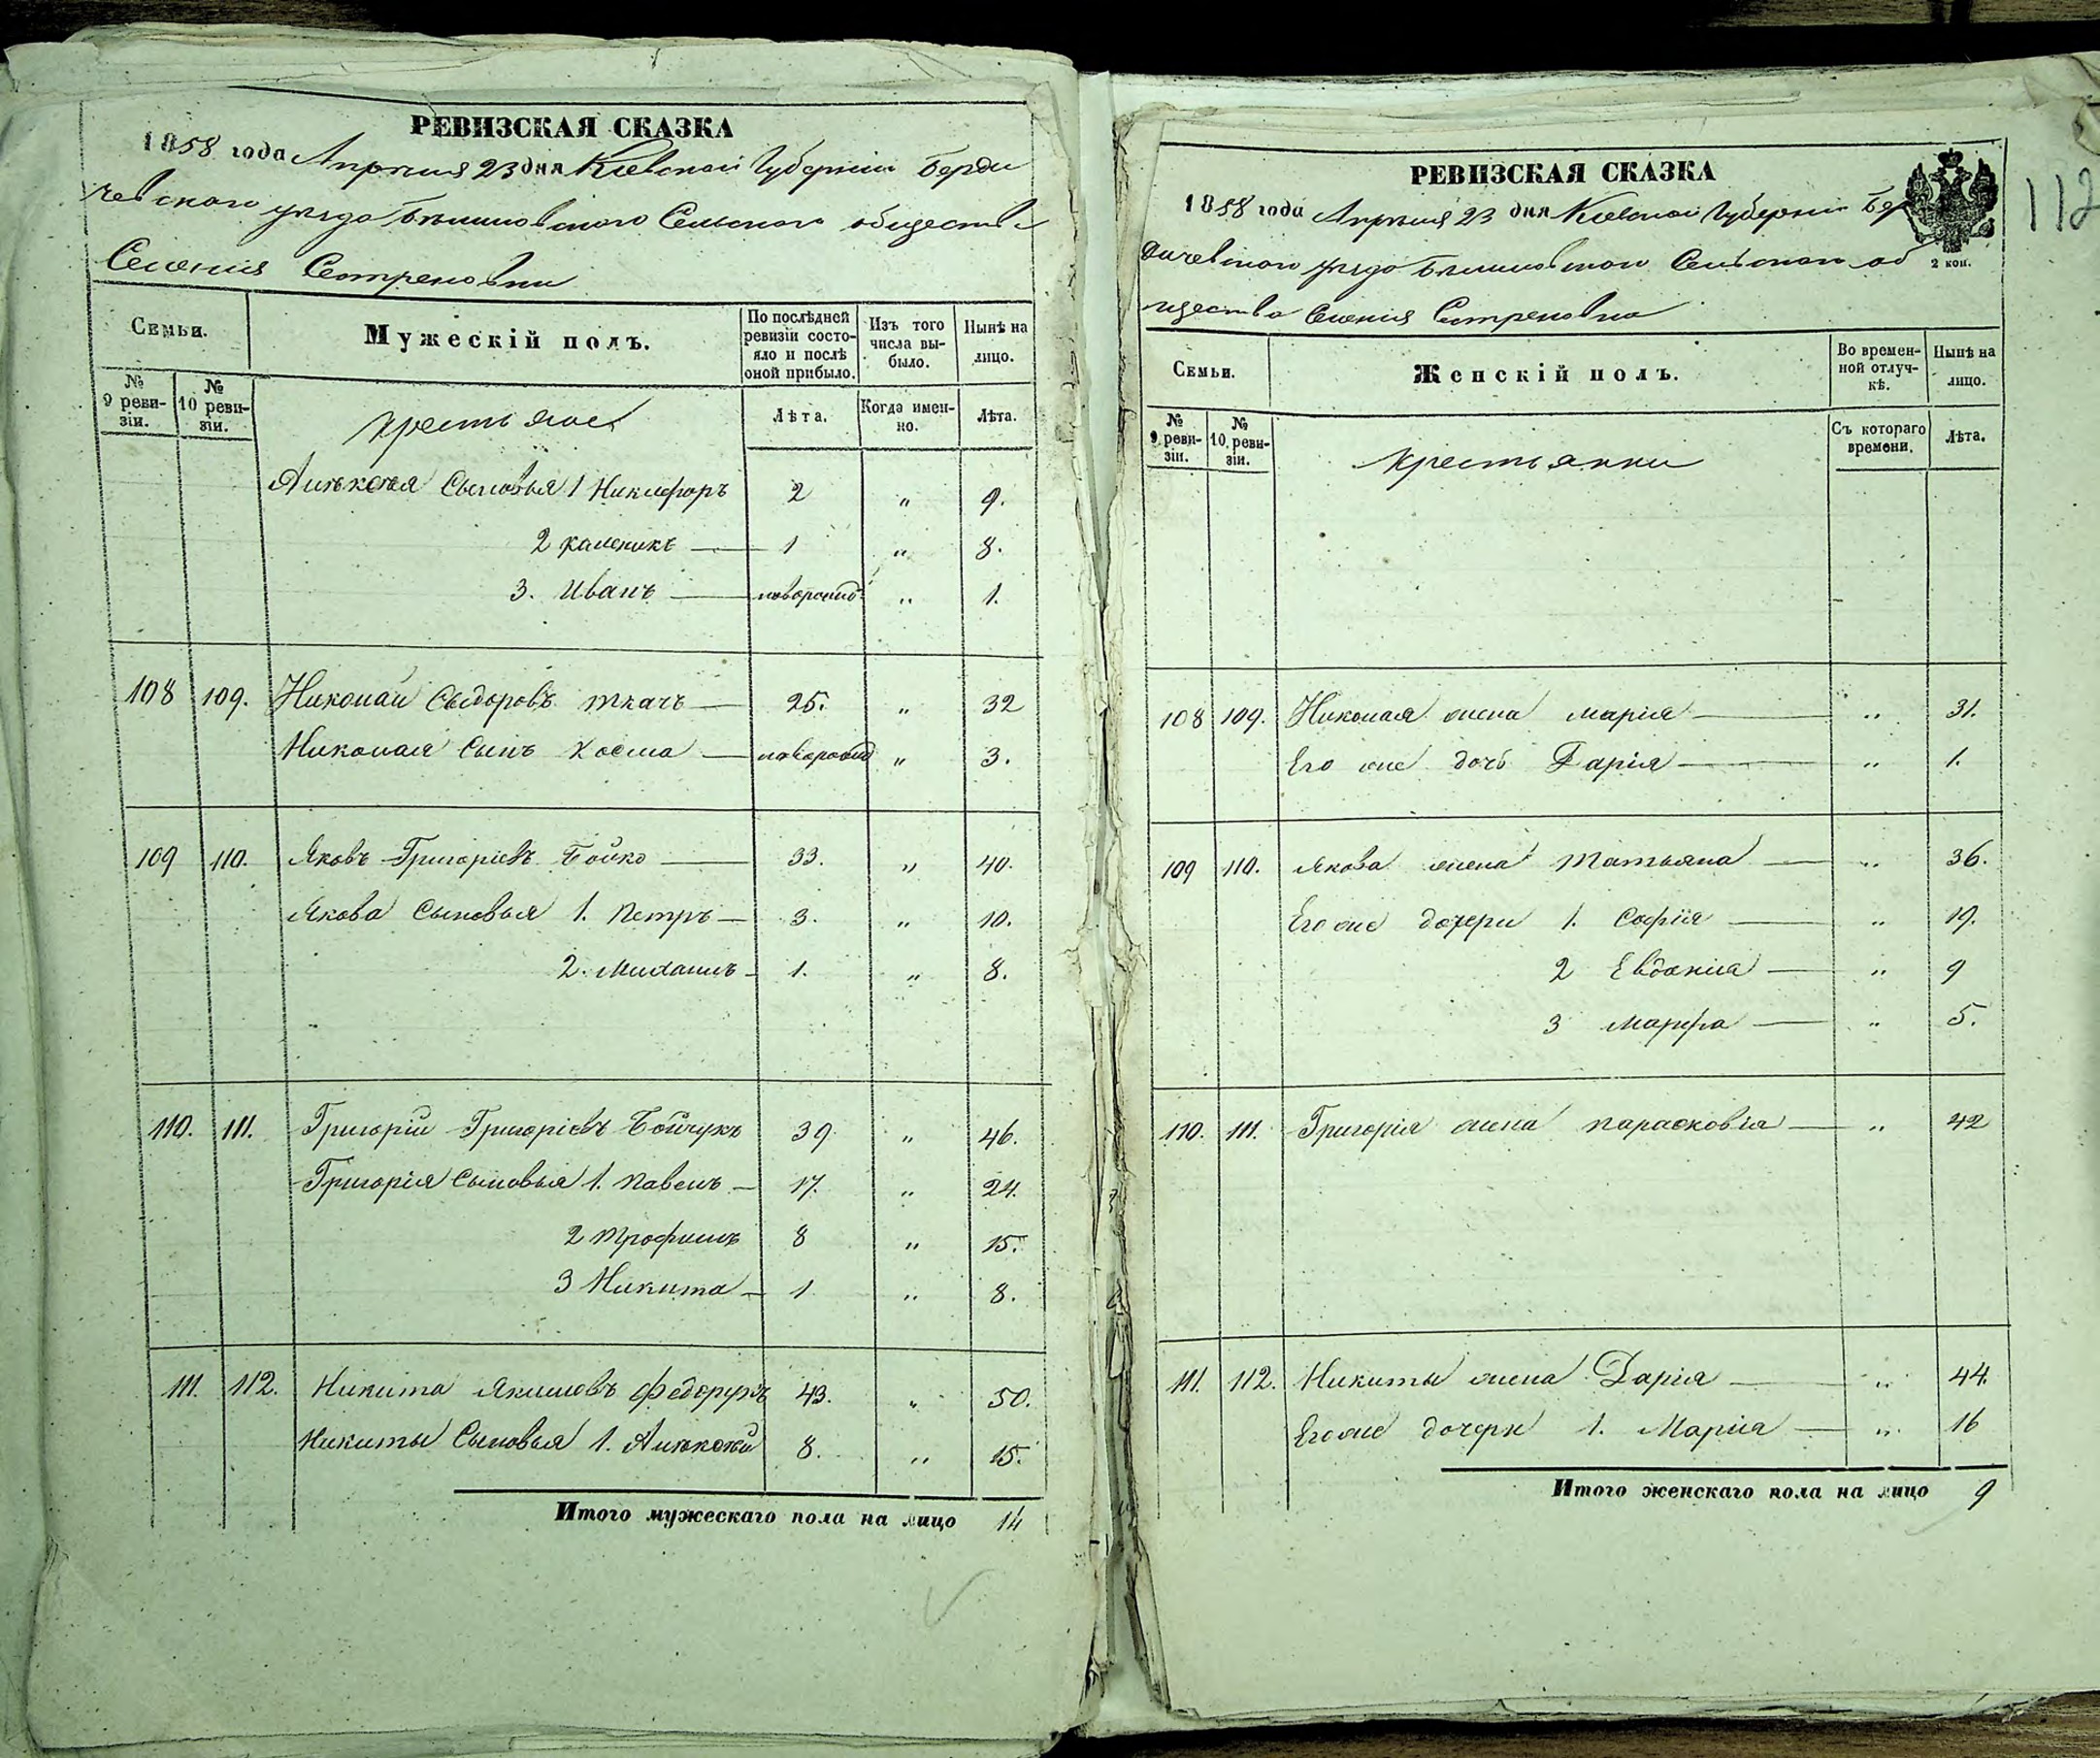 РЕВИЗСКАЯ СКАЗКА
1858 года Апрѣля 23 дня Кіевской Губерніи Берди
чевскаго уѣзда Бѣлиловскаго Сельскаго общества
Селенія Сестреновки
Семьи.
Мужескій полъ.
По послѣдней ревизіи состояло и послѣ оной прибыло.
Изъ того числа выбыло.
Нынѣ на лицо.
№ 9 ревизіи.
№ 10 ревизіи.
Крестьяне
Лѣта.
Когда именно.
Лѣта.
Алѣксѣя Сыновья 1 Никифоръ 2 " 9.
2 Каленикъ 1 " 8.
3. Иванъ новорожд. " 1.
108 109. Николай Сыдоровъ Ткачъ 25. " 32
Николая Сынъ Косма новорожд " 3.
109 110. Яковъ Григоріевъ Бойко 33. " 40.
Якова Сыновья 1. Петръ 3. " 10.
2. Михаилъ 1. " 8.
110. 111. Григорій Григоріевъ Бойчукъ 39 " 46.
Григорія Сыновья 1. Павелъ 17. " 24.
2 Трофимъ 8 " 15.
3 Никита 1 " 8.
111. 112. Никита Якимовъ Федорукъ 43. " 50.
Никиты Сыновья 1. Алѣксѣй 8. " 15.
Итого мужескаго пола на лицо 14
112
РЕВИЗСКАЯ СКАЗКА
1858 года Апрѣля 23 дня Кіевской Губерніи Бер
дичевскаго уѣзда Бѣлиловскаго Сельскаго об
2 коп.
щества Селенія Сестреновки
Семьи.
Женскій полъ.
Во временной отлучкѣ.
Нынѣ на лицо.
№ 9 ревизіи.
№ 10 ревизіи.
Крестьянки
Съ котораго времени.
Лѣта.
108 109. Николая жена Марія " 31.
Его же дочь Дарія " 1.
109 110. Якова жена Татьяна " 36.
Его же дочери 1. Софія " 19.
2 Евдокія " 9
3 Марфа " 5.
110. 111. Григорія жена Парасковія " 42
111. 112. Никиты жена Дарія " 44.
Его же дочери 1. Марія " 16
Итого женскаго пола на лицо 9